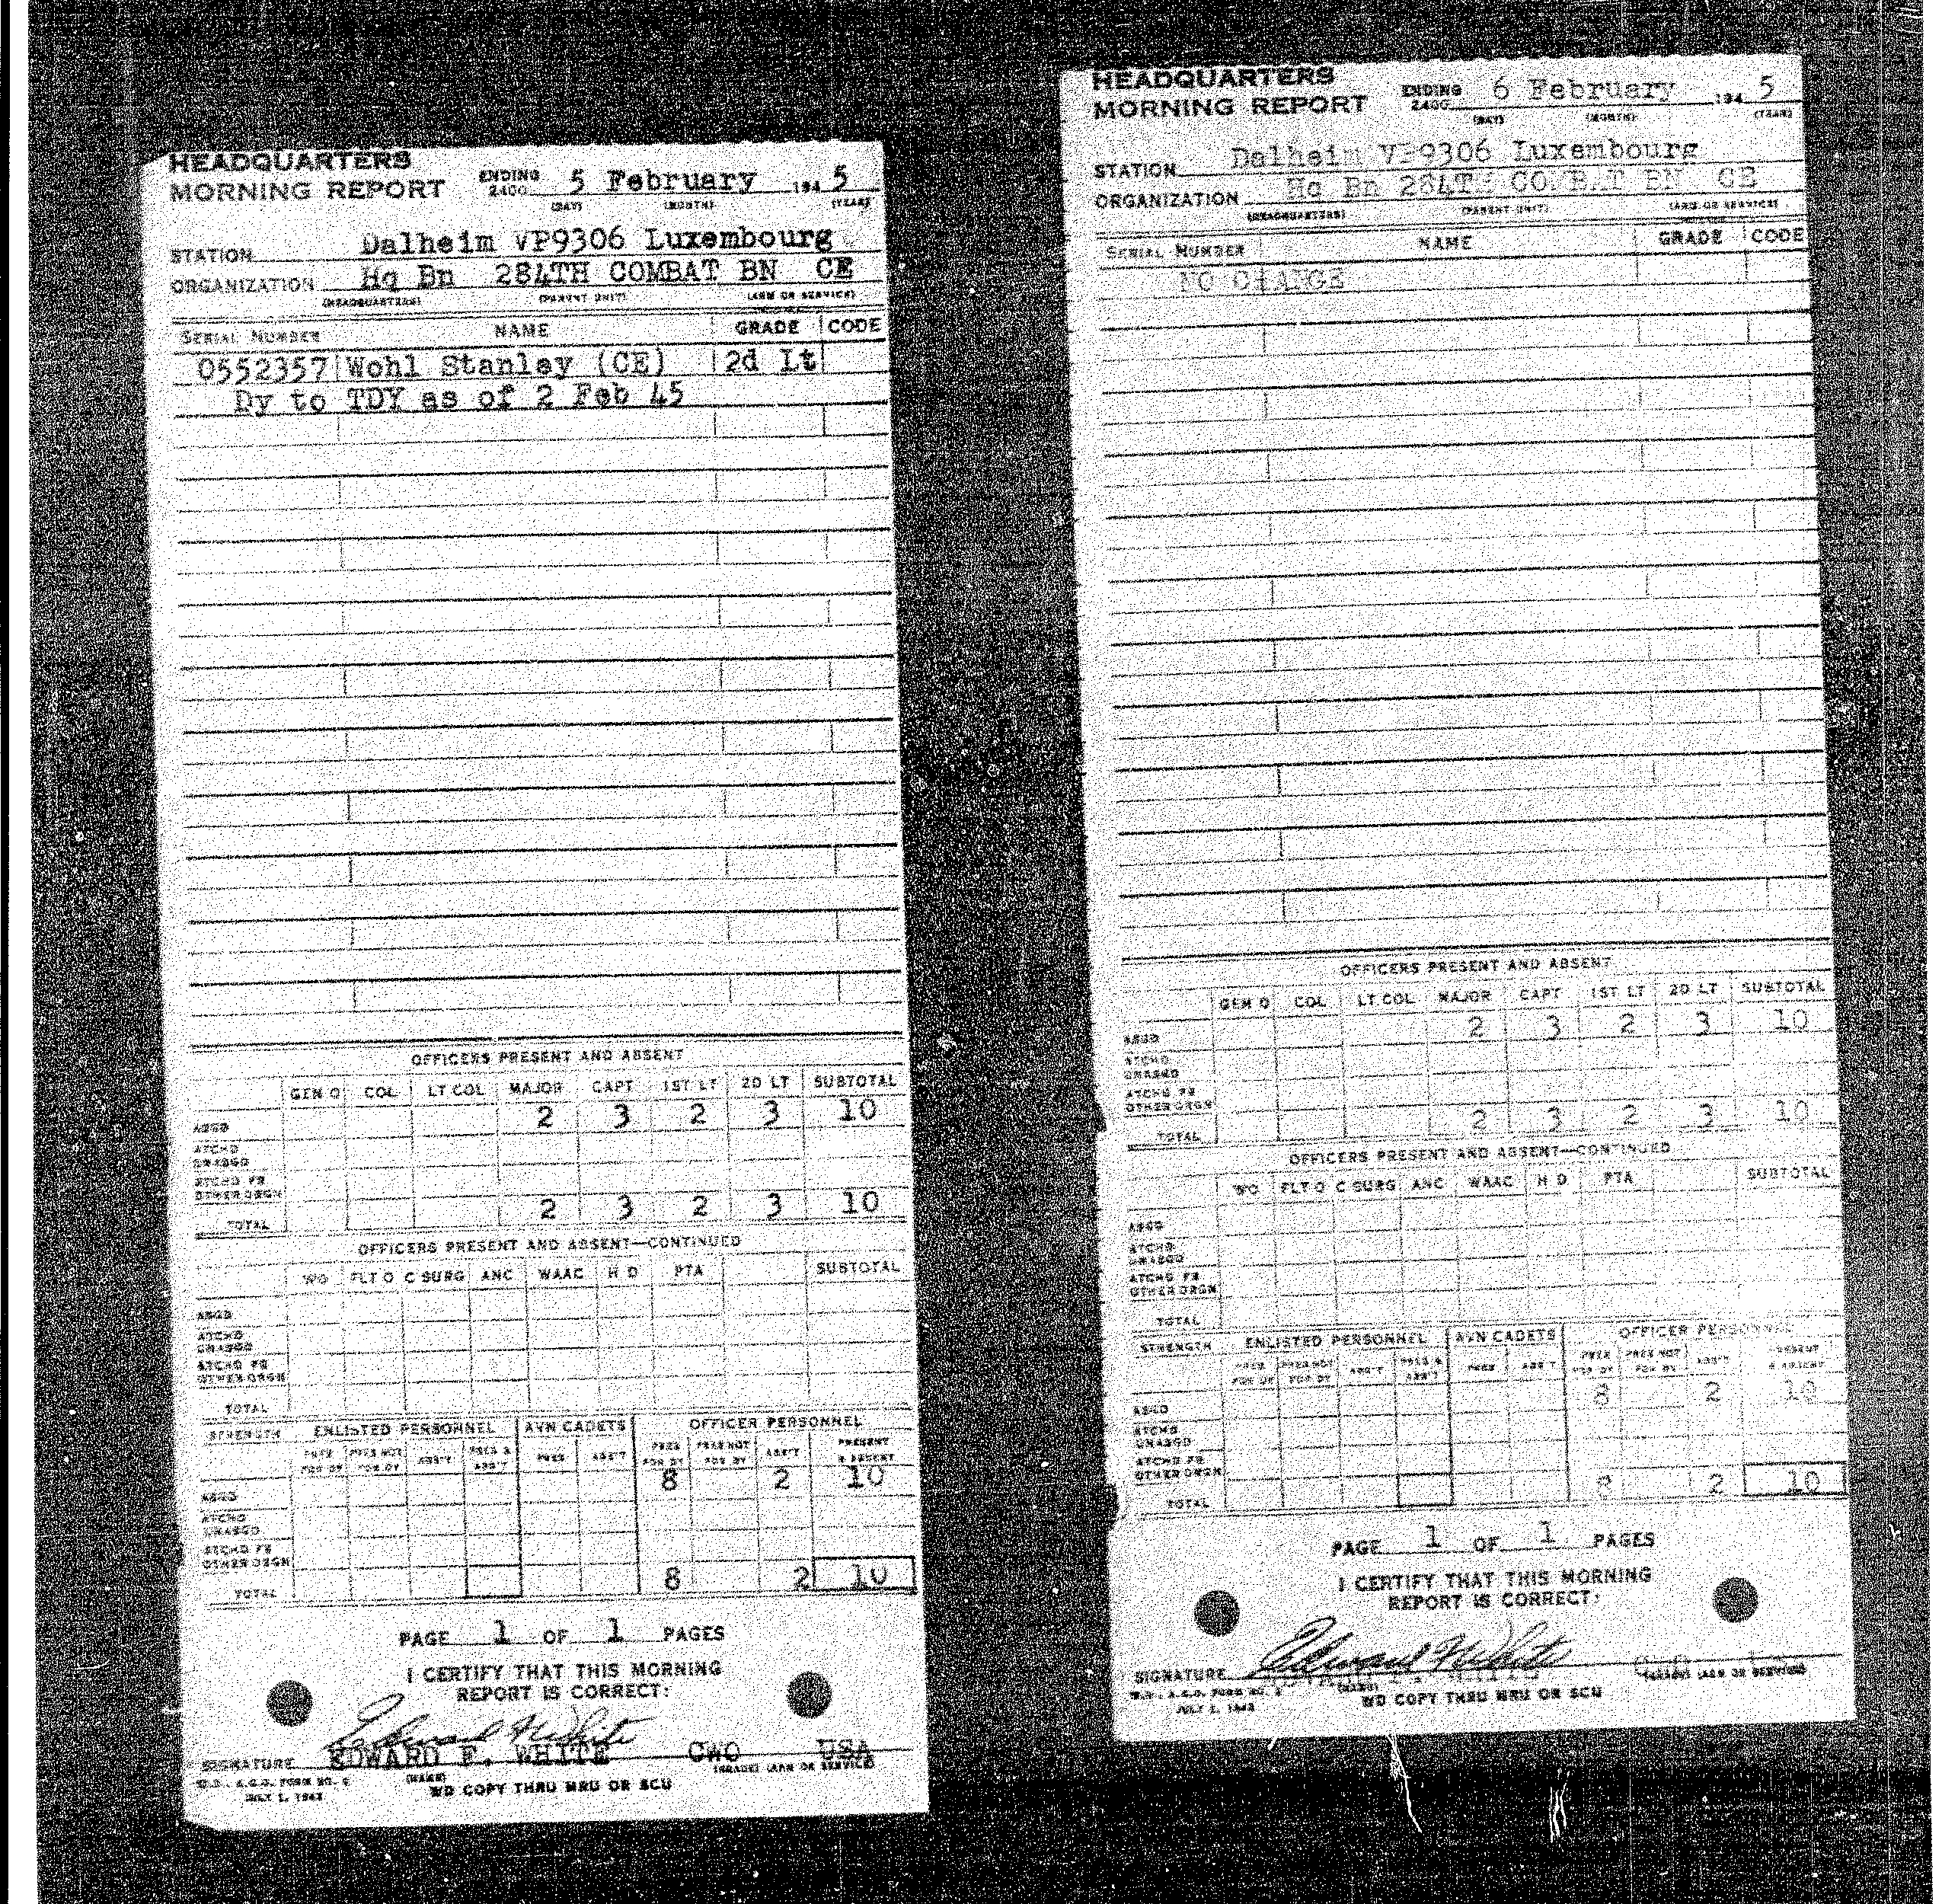 HEADQUARTERS
MORNING REPORT ENDING 2400 5 February 194 5
(DAY) (MONTH) (YEAR)
STATION Dalheim VP9306 Luxembourg
ORGANIZATION Hq Bn 284TH COMBAT BN CE
(HEADQUARTERS) (PARENT UNIT) (ARM OR SERVICE)
SERIAL NUMBER NAME GRADE CODE
0552357 Wohl Stanley (CE) 2d Lt
Dy to TDY as of 2 Feb 45
OFFICERS PRESENT AND ABSENT
GEN O COL LT COL MAJOR CAPT 1ST LT 2D LT SUBTOTAL
ASGD 2 3 2 3 10
ATCHD UNASGD
ATCHD FR OTHER ORGN
TOTAL 2 3 2 3 10
OFFICERS PRESENT AND ABSENT—CONTINUED
WO FLT O C SURG ANC WAAC H D PTA SUBTOTAL
ASGD
ATCHD UNASGD
ATCHD FR OTHER ORGN
TOTAL
STRENGTH ENLISTED PERSONNEL AVN CADETS OFFICER PERSONNEL
PRES FOR DY PRES NOT FOR DY ABS'T PRES & ABS'T PRES ABS'T PRES FOR DY PRES NOT FOR DY ABS'T PRESENT & ABSENT
ASGD 8 2 10
ATCHD UNASGD
ATCHD FR OTHER ORGN
TOTAL 8 2 10
PAGE 1 OF 1 PAGES
I CERTIFY THAT THIS MORNING
REPORT IS CORRECT:
Edward F White
SIGNATURE EDWARD F. WHITE CWO USA
(NAME) (GRADE) (ARM OR SERVICE)
W.D., A.G.O. FORM NO.
JULY 1, 1943
WD COPY THRU MRU OR SCU
HEADQUARTERS
MORNING REPORT ENDING 2400 6 February 194 5
(DAY) (MONTH) (YEAR)
STATION Dalheim VP9306 Luxembourg
ORGANIZATION Hq Bn 284TH COMBAT BN CE
(HEADQUARTERS) (PARENT UNIT) (ARM OR SERVICE)
SERIAL NUMBER NAME GRADE CODE
NO CHANGE
OFFICERS PRESENT AND ABSENT
GEN O COL LT COL MAJOR CAPT 1ST LT 2D LT SUBTOTAL
ASGD 2 3 2 3 10
ATCHD UNASGD
ATCHD FR OTHER ORGN
TOTAL 2 3 2 3 10
OFFICERS PRESENT AND ABSENT—CONTINUED
WO FLT O C SURG ANC WAAC H D PTA SUBTOTAL
ASGD
ATCHD UNASGD
ATCHD FR OTHER ORGN
TOTAL
STRENGTH ENLISTED PERSONNEL AVN CADETS OFFICER PERSONNEL
PRES FOR DY PRES NOT FOR DY ABS'T PRES & ABS'T PRES ABS'T PRES FOR DY PRES NOT FOR DY ABS'T PRESENT & ABSENT
ASGD 8 2 10
ATCHD UNASGD
ATCHD FR OTHER ORGN
TOTAL 8 2 10
PAGE 1 OF 1 PAGES
I CERTIFY THAT THIS MORNING
REPORT IS CORRECT:
Edward F White
SIGNATURE
(NAME) (GRADE) (ARM OR SERVICE)
W.D., A.G.O. FORM NO.
JULY 1, 1943
WD COPY THRU MRU OR SCU